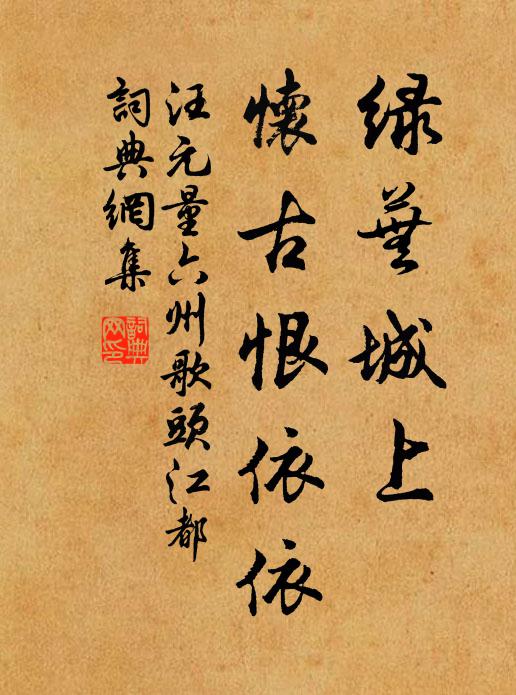 绿蕪城上
懷古恨依依
汪元量六州歌頭江都
詞典網集
詞典網印